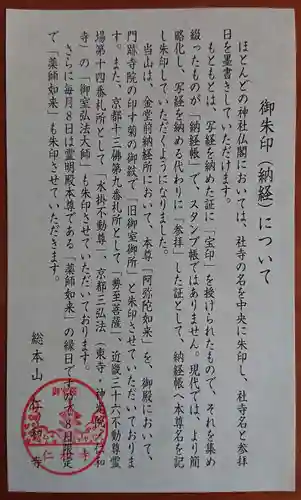 御朱印（納経）について
ほとんどの神社仏閣においては、社寺の名を中央に朱印し、社寺名と参拝
日を墨書きしていただけます。
もともとは、写経を納めた証に「宝印」を授けられたもので、それを集め
綴ったものが「納経帳」で、スタンプ帳ではありません。現代では、より簡
略化し、写経を納める代わりに「参拝」した証として、納経帳へ本尊名を記
し朱印していただくようになりました。
当山は、金堂前納経所において、本尊「阿弥陀如来」を、御殿において、
門跡寺院の印す菊の御紋で「旧御室御所」と朱印させていただいておりま
す。また、京都十三佛第九番札所として「勢至菩薩」、近畿三十六不動尊霊
場第十四番札所として「水掛不動尊」、京都三弘法（東寺・神光院・仁和
寺）の「御室弘法大師」も朱印させていただいております。
さらに毎月８日は霊明殿本尊である「薬師如来」の縁日で
８日限定
で「薬師如来」も朱印させていただきます。
総本山 仁和寺